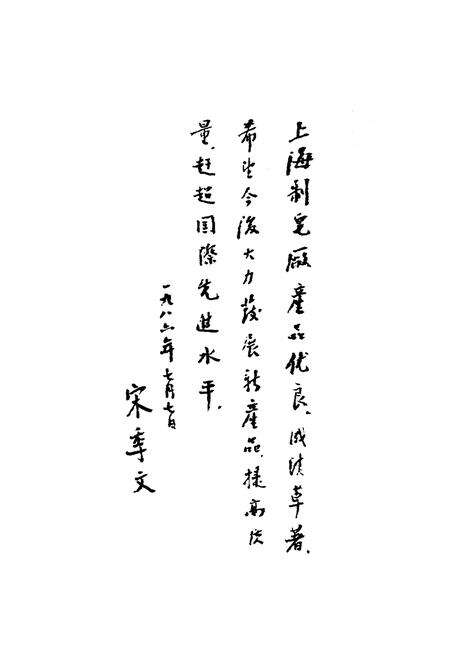 上海制皂厰產品优良、成绩卓著.
希望今後大力發展新產品、提高质
量、赶超国際先進水平.
一九八六年七月七日
宋季文